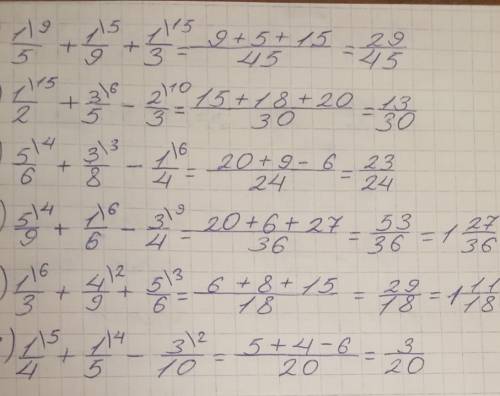 1\9/5 + 1\5/9 + 1\15/3 = 9+5+15/45 = 29/45
) 1\15/2 + 3\6/5 - 2\10/3 = 15+18+20/30 = 13/30
) 5\4/6 + 3\3/8 - 1\6/4 = 20+9-6/24 = 23/24
) 5\4/9 + 1\6/6 - 3\9/4 = 20+6+27/36 = 53/36 = 1 27/36
) 1\6/3 + 4\2/9 + 5\3/6 = 6+8+15/18 = 29/18 = 1 11/18
) 1\5/4 + 1\4/5 - 3\2/10 = 5+4-6/20 = 3/20